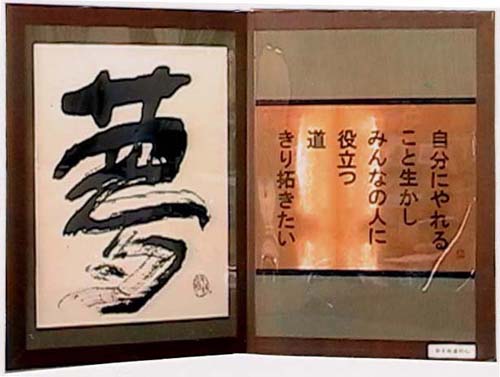 夢
自分にやれる
こと生かし
みんなの人に
役立つ
道
きり拓きたい